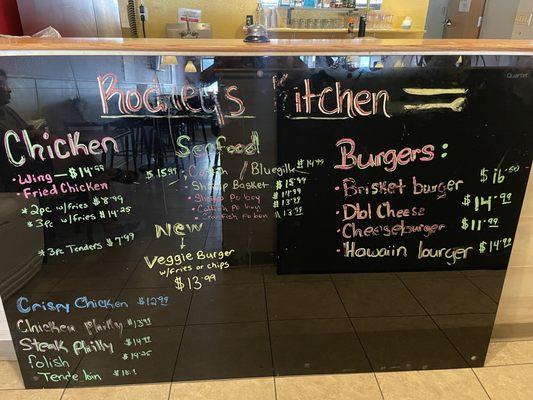 Rodney's Kitchen
Chicken
• Wing — $14.99
• Fried Chicken
* 2pc w/fries $8.99
* 3pc w/fries $14.25
* 3pc Tenders $7.99
Crispy Chicken $12.99
Chicken philly $13.99
Steak Philly $14.99
polish $14.25
Tenderloin
Seafood
$15.99 • Catfish / Bluegill • $14.99
• Shrimp Basket $15.99
• Shrimp Po boy $14.99
• Catfish Po boy $13.99
• Crawfish Po boy $13.99
New
Veggie Burger
w/fries or chips
$13.99
Burgers:
• Brisket burger $16.50
• Dbl Cheese $14.99
• Cheeseburger $11.99
• Hawaiin burger $14.99
Quartet